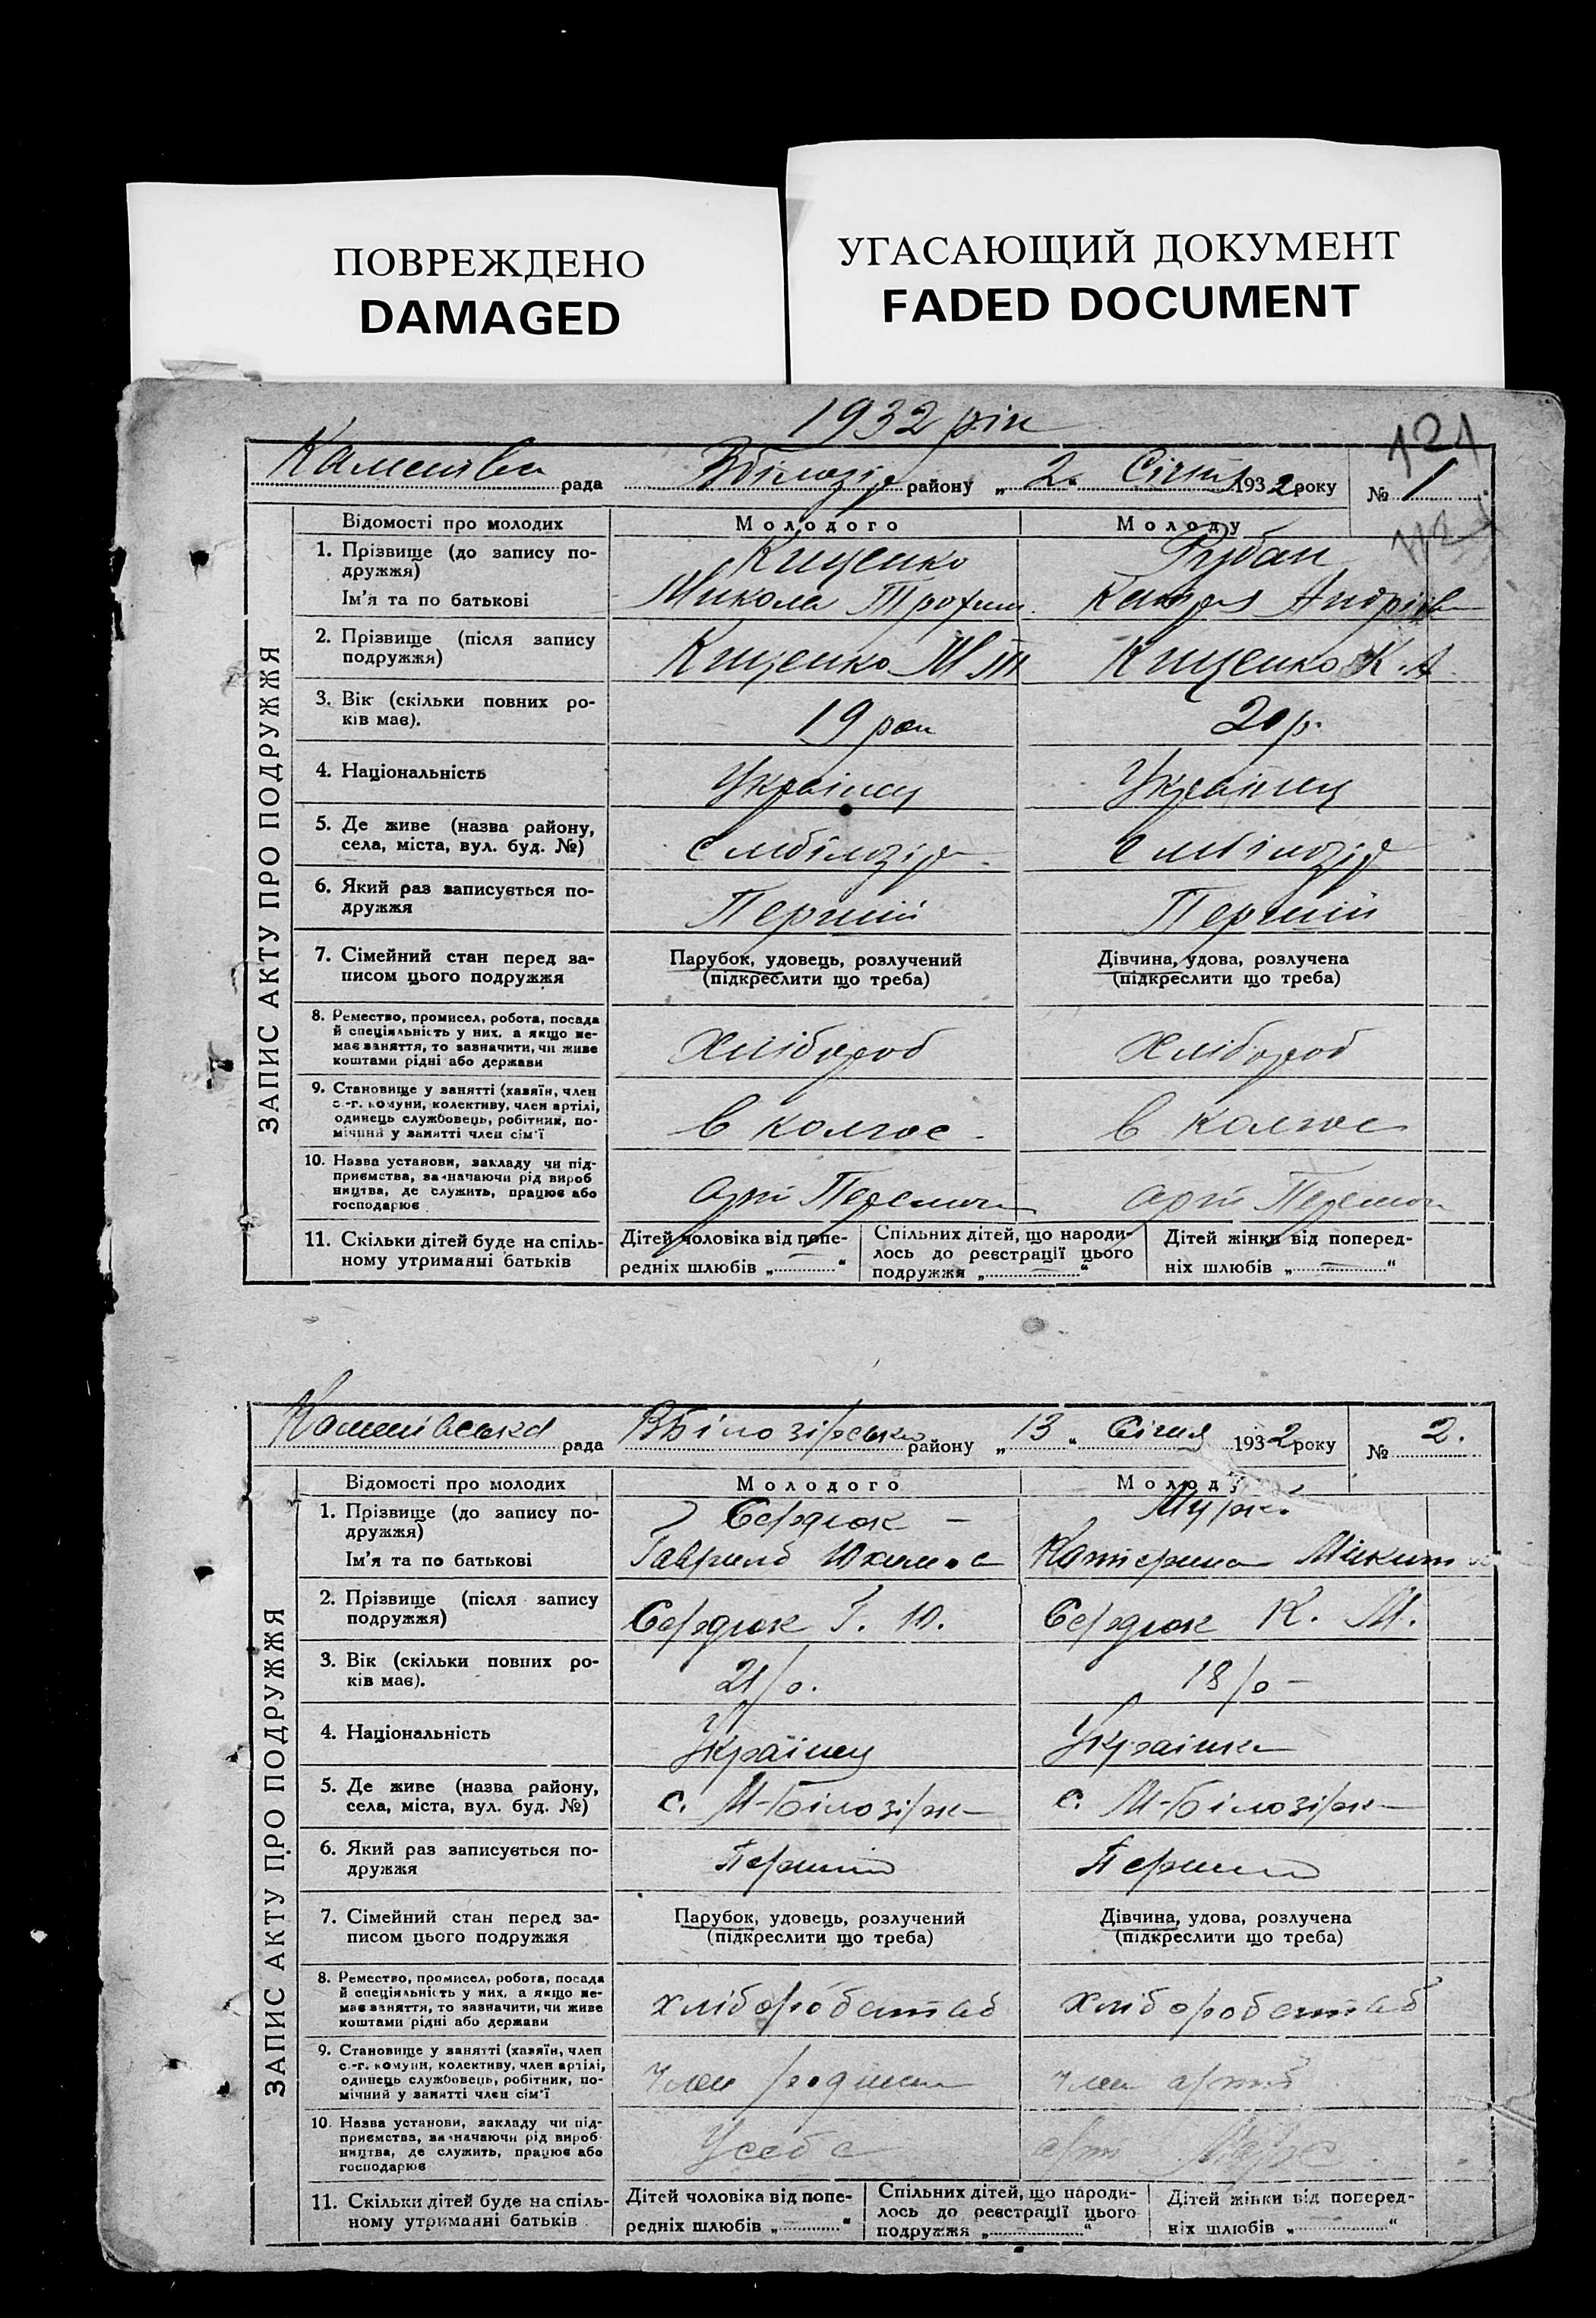 ПОВРЕЖДЕНО
DAMAGED
УГАСАЮЩИЙ ДОКУМЕНТ
FADED DOCUMENT
1932 рік
121
рада району „ 2 " Січня 1932 року № 1
ЗАПИС АКТУ ПРО ПОДРУЖЖЯ
Відомості про молодих Молодого Молоду
1. Прізвище (до запису по-
дружжя) Кищенко Рубан
Ім'я та по батькові Микола Трохим. Андріів
2. Прізвище (після запису
подружжя) Кищенко М Т Кищенко К. А
3. Вік (скільки повних ро-
ків має). 19 рок 20 р.
4. Національність Українец Українец
5. Де живе (назва району,
села, міста, вул. буд. №) с мбілозір с мбілозір
6. Який раз записується по-
дружжя Перший Перший
7. Сімейний стан перед за-
писом цього подружжя
Парубок, удовець, розлучений
(підкреслити що треба)
Дівчина, удова, розлучена
(підкреслити що треба)
8. Ремество, промисел, робота, посада
й спеціяльність у них, а якщо не-
має заняття, то зазначити, чи живе
коштами рідні або держави
Хлібороб Хлібороб
9. Становище у занятті (хазяїн, член
с.-г. комуни, колективу, член артілі,
одинець службовець, робітник, по-
мічний у занятті член сім'ї
в колгос в колгос
10. Назва установи, закладу чи під-
приємства, зазначаючи рід вироб
ництва, де служить, працює або
господарює
арт Перемог арт Перемог
11. Скільки дітей буде на спіль-
ному утриманні батьків
Дітей чоловіка від попе-
редніх шлюбів „ — "
Спільних дітей, що народи-
лось до реєстрації цього
подружжя „ — "
Дітей жінки від поперед-
ніх шлюбів „ — "
рада ВБілозірсько району „ 13 " Січня 1932 року № 2.
ЗАПИС АКТУ ПРО ПОДРУЖЖЯ
Відомості про молодих Молодого Молоду
1. Прізвище (до запису по-
дружжя) Сердюк —
Ім'я та по батькові Гаврило Катерина Микит
2. Прізвище (після запису
подружжя) Сердюк Г. Ю. Сердюк К. М.
3. Вік (скільки повних ро-
ків має). 21 р. 18 р —
4. Національність Українец Українка
5. Де живе (назва району,
села, міста, вул. буд. №) с. М-Білозірк с. М-Білозірк
6. Який раз записується по-
дружжя Перший Перший
7. Сімейний стан перед за-
писом цього подружжя
Парубок, удовець, розлучений
(підкреслити що треба)
Дівчина, удова, розлучена
(підкреслити що треба)
8. Ремество, промисел, робота, посада
й спеціяльність у них, а якщо не-
має заняття, то зазначити, чи живе
коштами рідні або держави
9. Становище у занятті (хазяїн, член
с.-г. комуни, колективу, член артілі,
одинець службовець, робітник, по-
мічний у занятті член сім'ї
член родини член артіл
10. Назва установи, закладу чи під-
приємства, зазначаючи рід вироб-
ництва, де служить, працює або
господарює
У себе арт
11. Скільки дітей буде на спіль-
ному утриманні батьків
Дітей чоловіка від попе-
редніх шлюбів „ "
Спільних дітей, що народи-
лось до реєстрації цього
подружжя „ — "
Дітей жінки від поперед-
ніх шлюбів „ — "